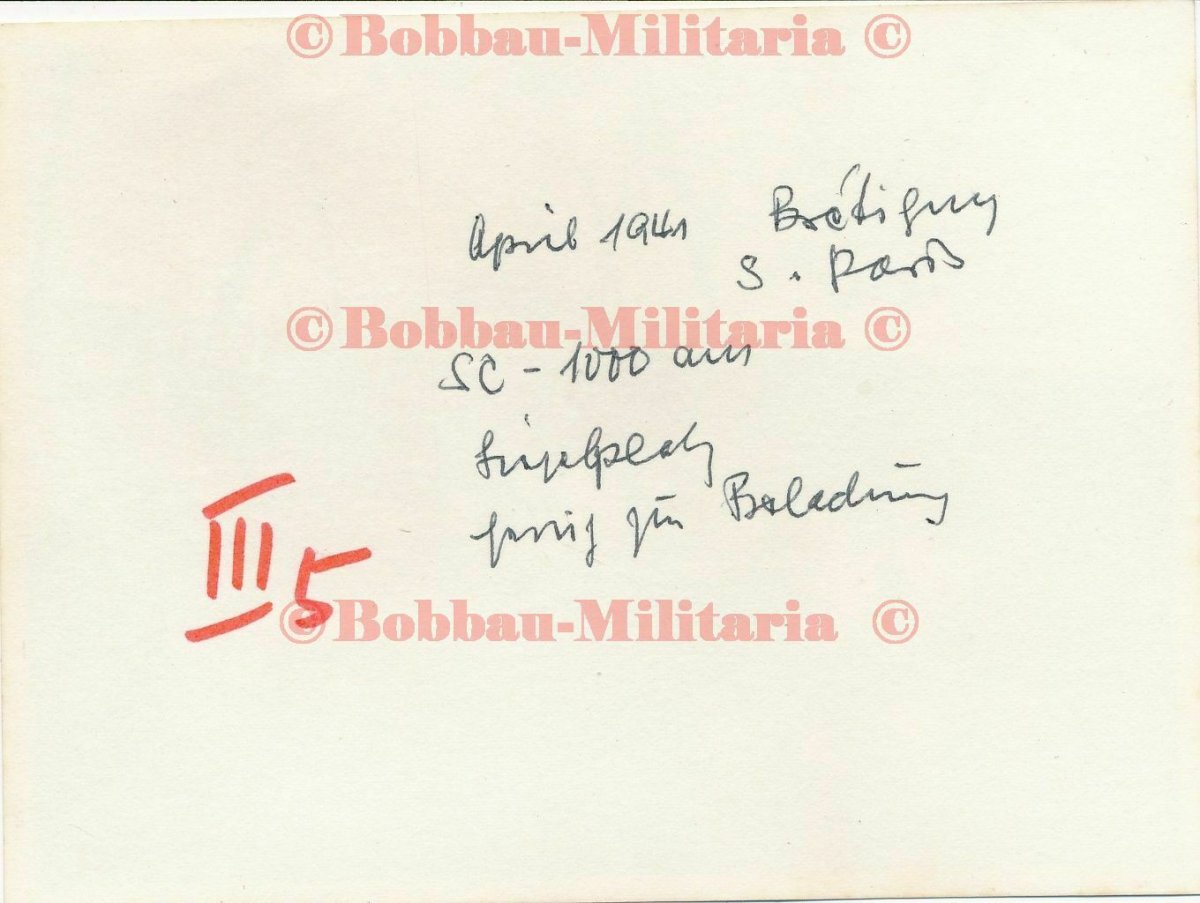 © Bobbau-Militaria ©
April 1941 Brétigny
S. Paris
© Bobbau-Militaria ©
SC - 1000 am
fertig zur Beladung
III 5
© Bobbau-Militaria ©